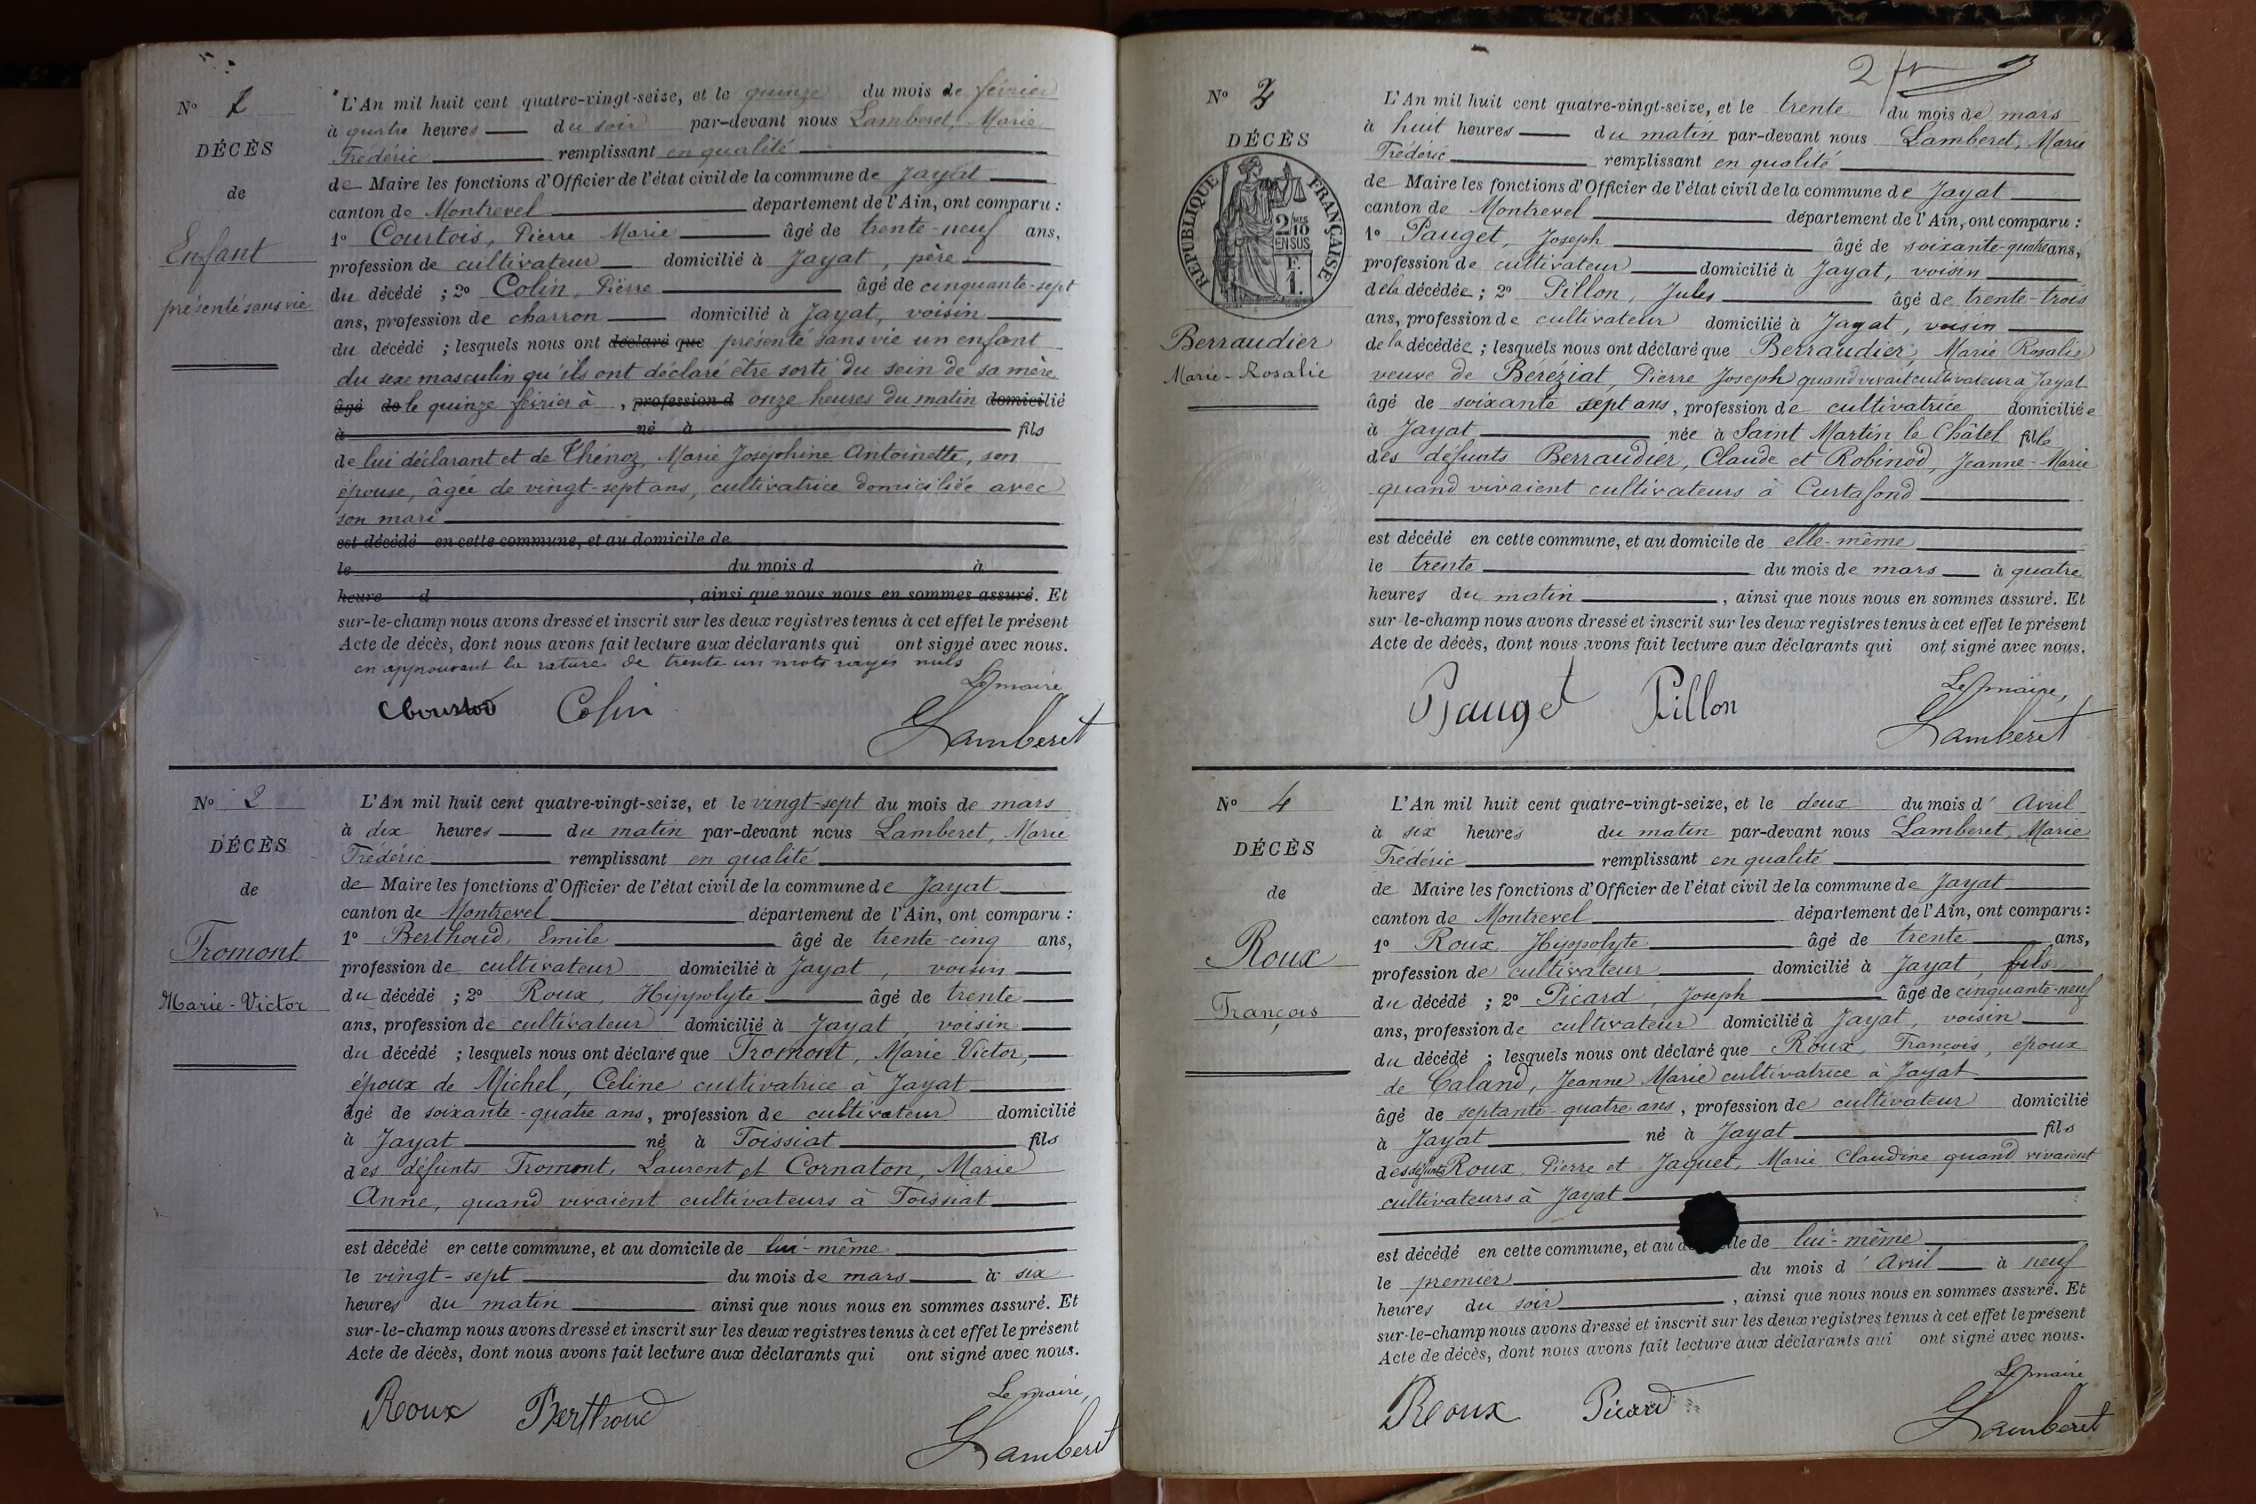 N° 1
DÉCÈS
de
Enfant
présenté sans vie
L'An mil huit cent quatre-vingt-seize, et le quinze du mois de février
à quatre heures du soir par-devant nous Lamberet, Marie
Frédéric remplissant en qualité
de Maire les fonctions d'Officier de l'état civil de la commune de Jayat
canton de Montrevel département de l'Ain, ont comparu :
1° Courtois, Pierre Marie âgé de trente-neuf ans,
profession de cultivateur domicilié à Jayat, père
du décédé ; 2° Colin, Pierre âgé de cinquante-sept
ans, profession de charron domicilié à Jayat, voisin
du décédé ; lesquels nous ont déclaré que présenté sans vie un enfant
du sexe masculin qu'ils ont déclaré être sorti du sein de sa mère
âgé de le quinze février à , profession d onze heures du matin domicilié
à né à fils
de lui déclarant et de Thénoz, Marie Joséphine Antoinette, son
épouse, âgée de vingt-sept ans, cultivatrice domiciliée avec
son mari
est décédé en cette commune, et au domicile de
le du mois d à
heure d , ainsi que nous nous en sommes assuré. Et
sur-le-champ nous avons dressé et inscrit sur les deux registres tenus à cet effet le présent
Acte de décès, dont nous avons fait lecture aux déclarants qui ont signé avec nous.
en approuvant la rature de trente un mots rayés nuls
Le maire
Colin
Lamberet
N° 2
DÉCÈS
de
Fromont
Marie-Victor
L'An mil huit cent quatre-vingt-seize, et le vingt-sept du mois de mars
à dix heures du matin par-devant nous Lamberet, Marie
Frédéric remplissant en qualité
de Maire les fonctions d'Officier de l'état civil de la commune de Jayat
canton de Montrevel département de l'Ain, ont comparu :
1° Berthoud, Emile âgé de trente-cinq ans,
profession de cultivateur domicilié à Jayat, voisin
du décédé ; 2° Roux, Hippolyte âgé de trente
ans, profession de cultivateur domicilié à Jayat, voisin
du décédé ; lesquels nous ont déclaré que Fromont, Marie Victor,
époux de Michel, Celine cultivatrice à Jayat
âgé de soixante-quatre ans, profession de cultivateur domicilié
à Jayat né à Foissiat fils
des défunts Fromont, Laurent et Cornaton, Marie
Anne, quand vivaient cultivateurs à Foissiat
est décédé en cette commune, et au domicile de lui-même
le vingt-sept du mois de mars à six
heures du matin ainsi que nous nous en sommes assuré. Et
sur-le-champ nous avons dressé et inscrit sur les deux registres tenus à cet effet le présent
Acte de décès, dont nous avons fait lecture aux déclarants qui ont signé avec nous.
Le maire,
Roux Berthoud
Lamberet
2
N° 3
DÉCÈS
RÉPUBLIQUE FRANÇAISE
2/10
EN SUS
F.
1.
Berraudier
Marie-Rosalie
L'An mil huit cent quatre-vingt-seize, et le trente du mois de mars
à huit heures du matin par-devant nous Lamberet, Marie
Frédéric remplissant en qualité
de Maire les fonctions d'Officier de l'état civil de la commune de Jayat
canton de Montrevel département de l'Ain, ont comparu :
1° Pauget, Joseph âgé de soixante-quatre ans,
profession de cultivateur domicilié à Jayat, voisin
de la décédée ; 2° Pillon, Jules âgé de trente-trois
ans, profession de cultivateur domicilié à Jayat, voisin
de la décédée ; lesquels nous ont déclaré que Berraudier, Marie Rosalie
veuve de Béréziat, Pierre Joseph quand vivait cultivateur à Jayat
âgé de soixante sept ans, profession de cultivatrice domiciliée
à Jayat née à Saint Martin le Châtel fille
des défunts Berraudier, Claude et Robinod, Jeanne-Marie
quand vivaient cultivateurs à Curtafond
est décédé en cette commune, et au domicile de elle-même
le trente du mois de mars à quatre
heures du matin , ainsi que nous nous en sommes assuré. Et
sur-le-champ nous avons dressé et inscrit sur les deux registres tenus à cet effet le présent
Acte de décès, dont nous avons fait lecture aux déclarants qui ont signé avec nous.
Le maire,
Pauget Pillon
Lamberet
N° 4
DÉCÈS
de
Roux
François
L'An mil huit cent quatre-vingt-seize, et le deux du mois d' Avril
à six heures du matin par-devant nous Lamberet, Marie
Frédéric remplissant en qualité
de Maire les fonctions d'Officier de l'état civil de la commune de Jayat
canton de Montrevel département de l'Ain, ont comparu :
1° Roux, Hippolyte âgé de trente ans,
profession de cultivateur domicilié à Jayat, fils
du décédé ; 2° Picard, Joseph âgé de cinquante-neuf
ans, profession de cultivateur domicilié à Jayat, voisin
du décédé ; lesquels nous ont déclaré que Roux, François, époux
de Caland, Jeanne Marie cultivatrice à Jayat
âgé de septante-quatre ans, profession de cultivateur domicilié
à Jayat né à Jayat fils
des défunts Roux, Pierre et Jaquet, Marie Claudine quand vivaient
cultivateurs à Jayat
est décédé en cette commune, et au de lui-même
le premier du mois d' Avril à neuf
heures du soir , ainsi que nous nous en sommes assuré. Et
sur-le-champ nous avons dressé et inscrit sur les deux registres tenus à cet effet le présent
Acte de décès, dont nous avons fait lecture aux déclarants qui ont signé avec nous.
Le maire
Roux Picard
Lamberet